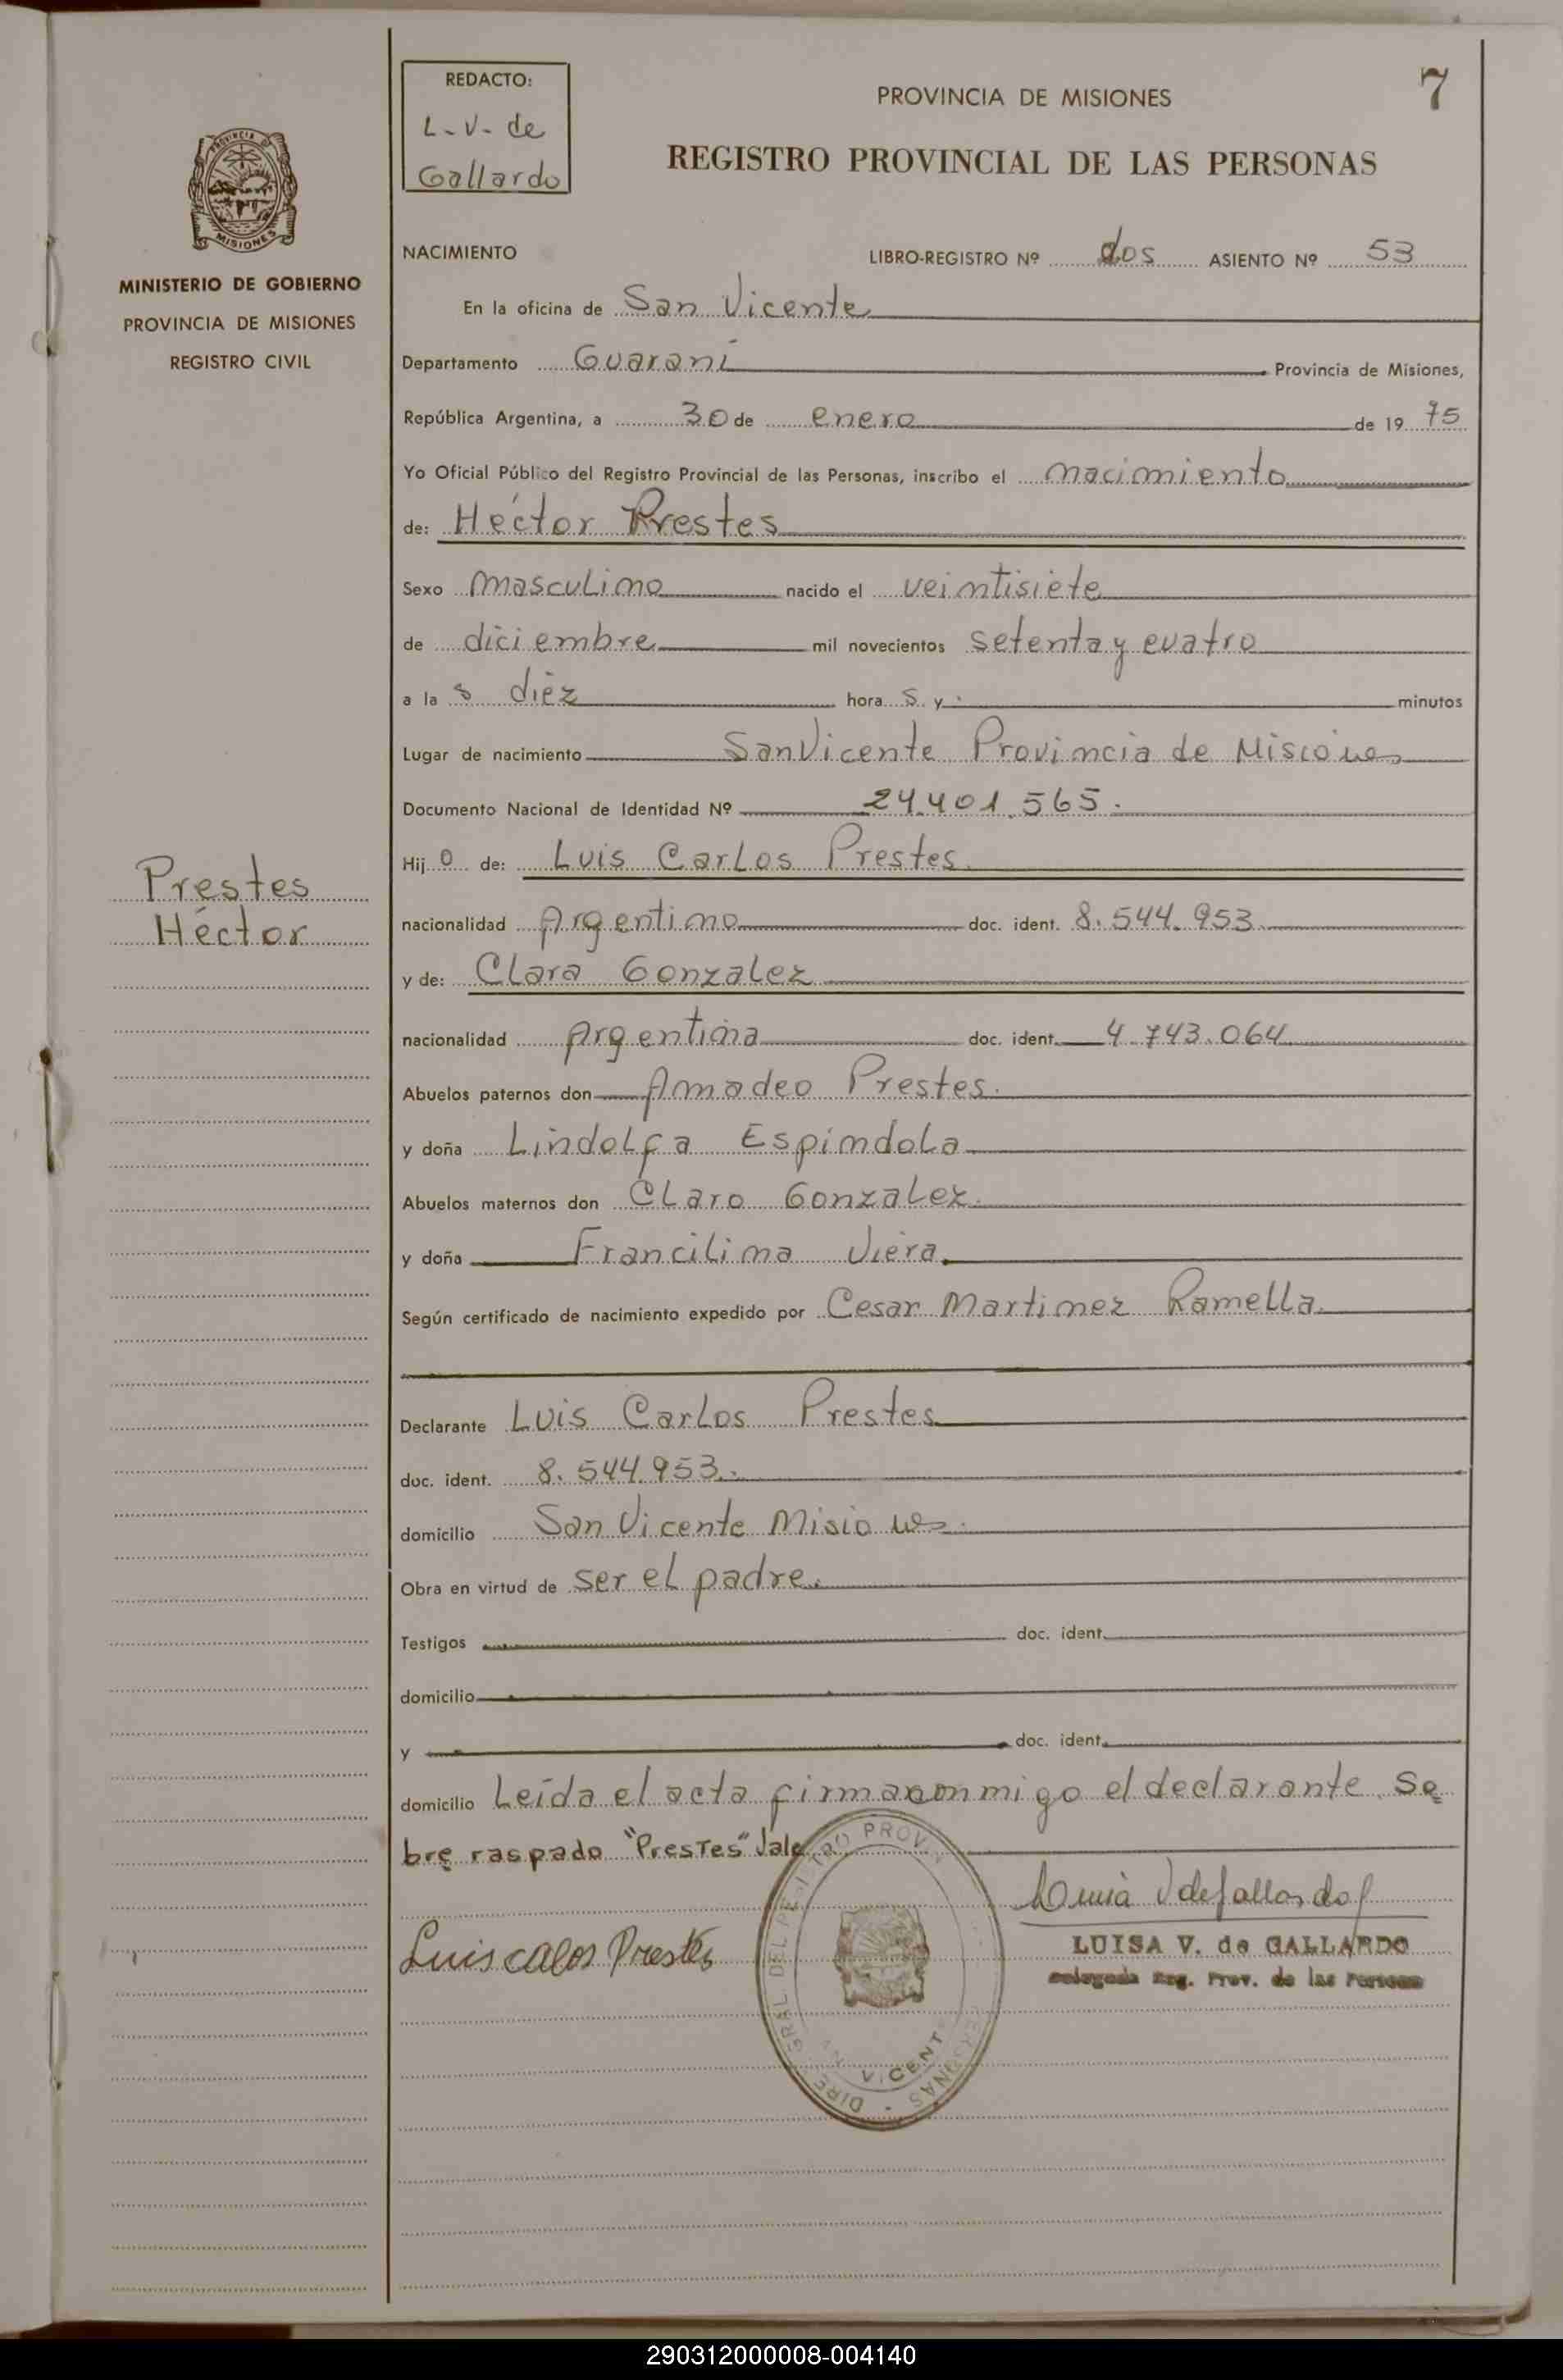 7
REDACTO:
L-V- de
Gallardo
PROVINCIA DE MISIONES
REGISTRO PROVINCIAL DE LAS PERSONAS
PROVINCIA
MISIONES
MINISTERIO DE GOBIERNO
PROVINCIA DE MISIONES
REGISTRO CIVIL
NACIMIENTO LIBRO-REGISTRO Nº dos ASIENTO Nº 53
En la oficina de San Vicente
Departamento Guaraní Provincia de Misiones,
República Argentina, a 30 de enero de 19 75
Yo Oficial Público del Registro Provincial de las Personas, inscribo el nacimiento
de: Héctor Prestes
Sexo masculino nacido el veintisiete
de diciembre mil novecientos setenta y cuatro
a la s diez hora s y minutos
Lugar de nacimiento San Vicente Provincia de Misiones
Documento Nacional de Identidad Nº 24.401.565.
Hij o de: Luis Carlos Prestes
Prestes
Héctor
nacionalidad Argentino doc. ident. 8.544.953
y de: Clara Gonzalez
nacionalidad Argentina doc. ident. 4.743.064
Abuelos paternos don Amadeo Prestes.
y doña Lindolfa Espindola
Abuelos maternos don Claro Gonzalez.
y doña Francilina Viera.
Según certificado de nacimiento expedido por Cesar Martinez Ramella.
Declarante Luis Carlos Prestes
doc. ident. 8.544.953.
domicilio San Vicente Misiones.
Obra en virtud de ser el padre.
Testigos doc. ident.
domicilio
y doc. ident.
domicilio Leída el acta firma conmigo el declarante. So
bre raspado "Prestes" Vale
Luis calos Prestes
LUISA V. de GALLARDO
Delegada Reg. Prov. de las Personas
290312000008-004140